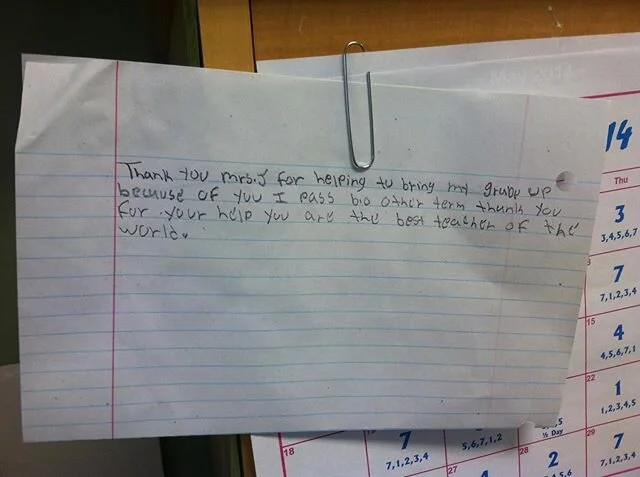 Thank you mrs.J for helping to bring my grade up
because of you I pass bio other term thank you
for your help you are the best teacher of the
world.
14
Thu
3
3,4,5,6,7
7
7,1,2,3,4
15
4
4,5,6,7,1
22
1
1,2,3,4,5
½ Day
29
18
7
7,1,2,3,4
5,6,7,1,2
27
28
2
7
7,1,2,3,4